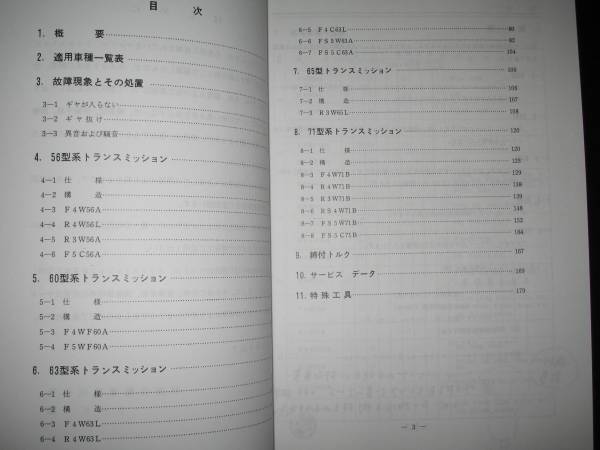 目　次
1. 概　　要
2. 適用車種一覧表
3. 故障現象とその処置
3－1 ギヤが入らない
3－2 ギヤ抜け
3－3 異音および騒音
4. 56型系トランスミッション
4－1 仕　　様
4－2 構　　造
4－3 F4W56A
4－4 R4W56L
4－5 R3W56A
4－6 F5C56A
5. 60型系トランスミッション
5－1 仕　　様
5－2 構　　造
5－3 F4WF60A
5－4 F5WF60A
6. 63型系トランスミッション
6－1 仕　　様
6－2 構　　造
6－3 F4W63L
6－4 R4W63L
6－5 F4C63L
6－6 FS5W63A 92
6－7 FS5C63A 104
7. 65型トランスミッション 106
7－1 仕　　様 106
7－2 構　　造 107
7－3 R3W65L 108
8. 71型系トランスミッション 120
8－1 仕　　様 120
8－2 構　　造 125
8－3 F4W71B 129
8－4 R4W71B 138
8－5 R3W71B 139
8－6 RS4W71B 148
8－7 FS5W71B 152
8－8 FS5C71B 164
9. 締付トルク 167
10. サービス データ 169
11. 特殊工具 179
－3－